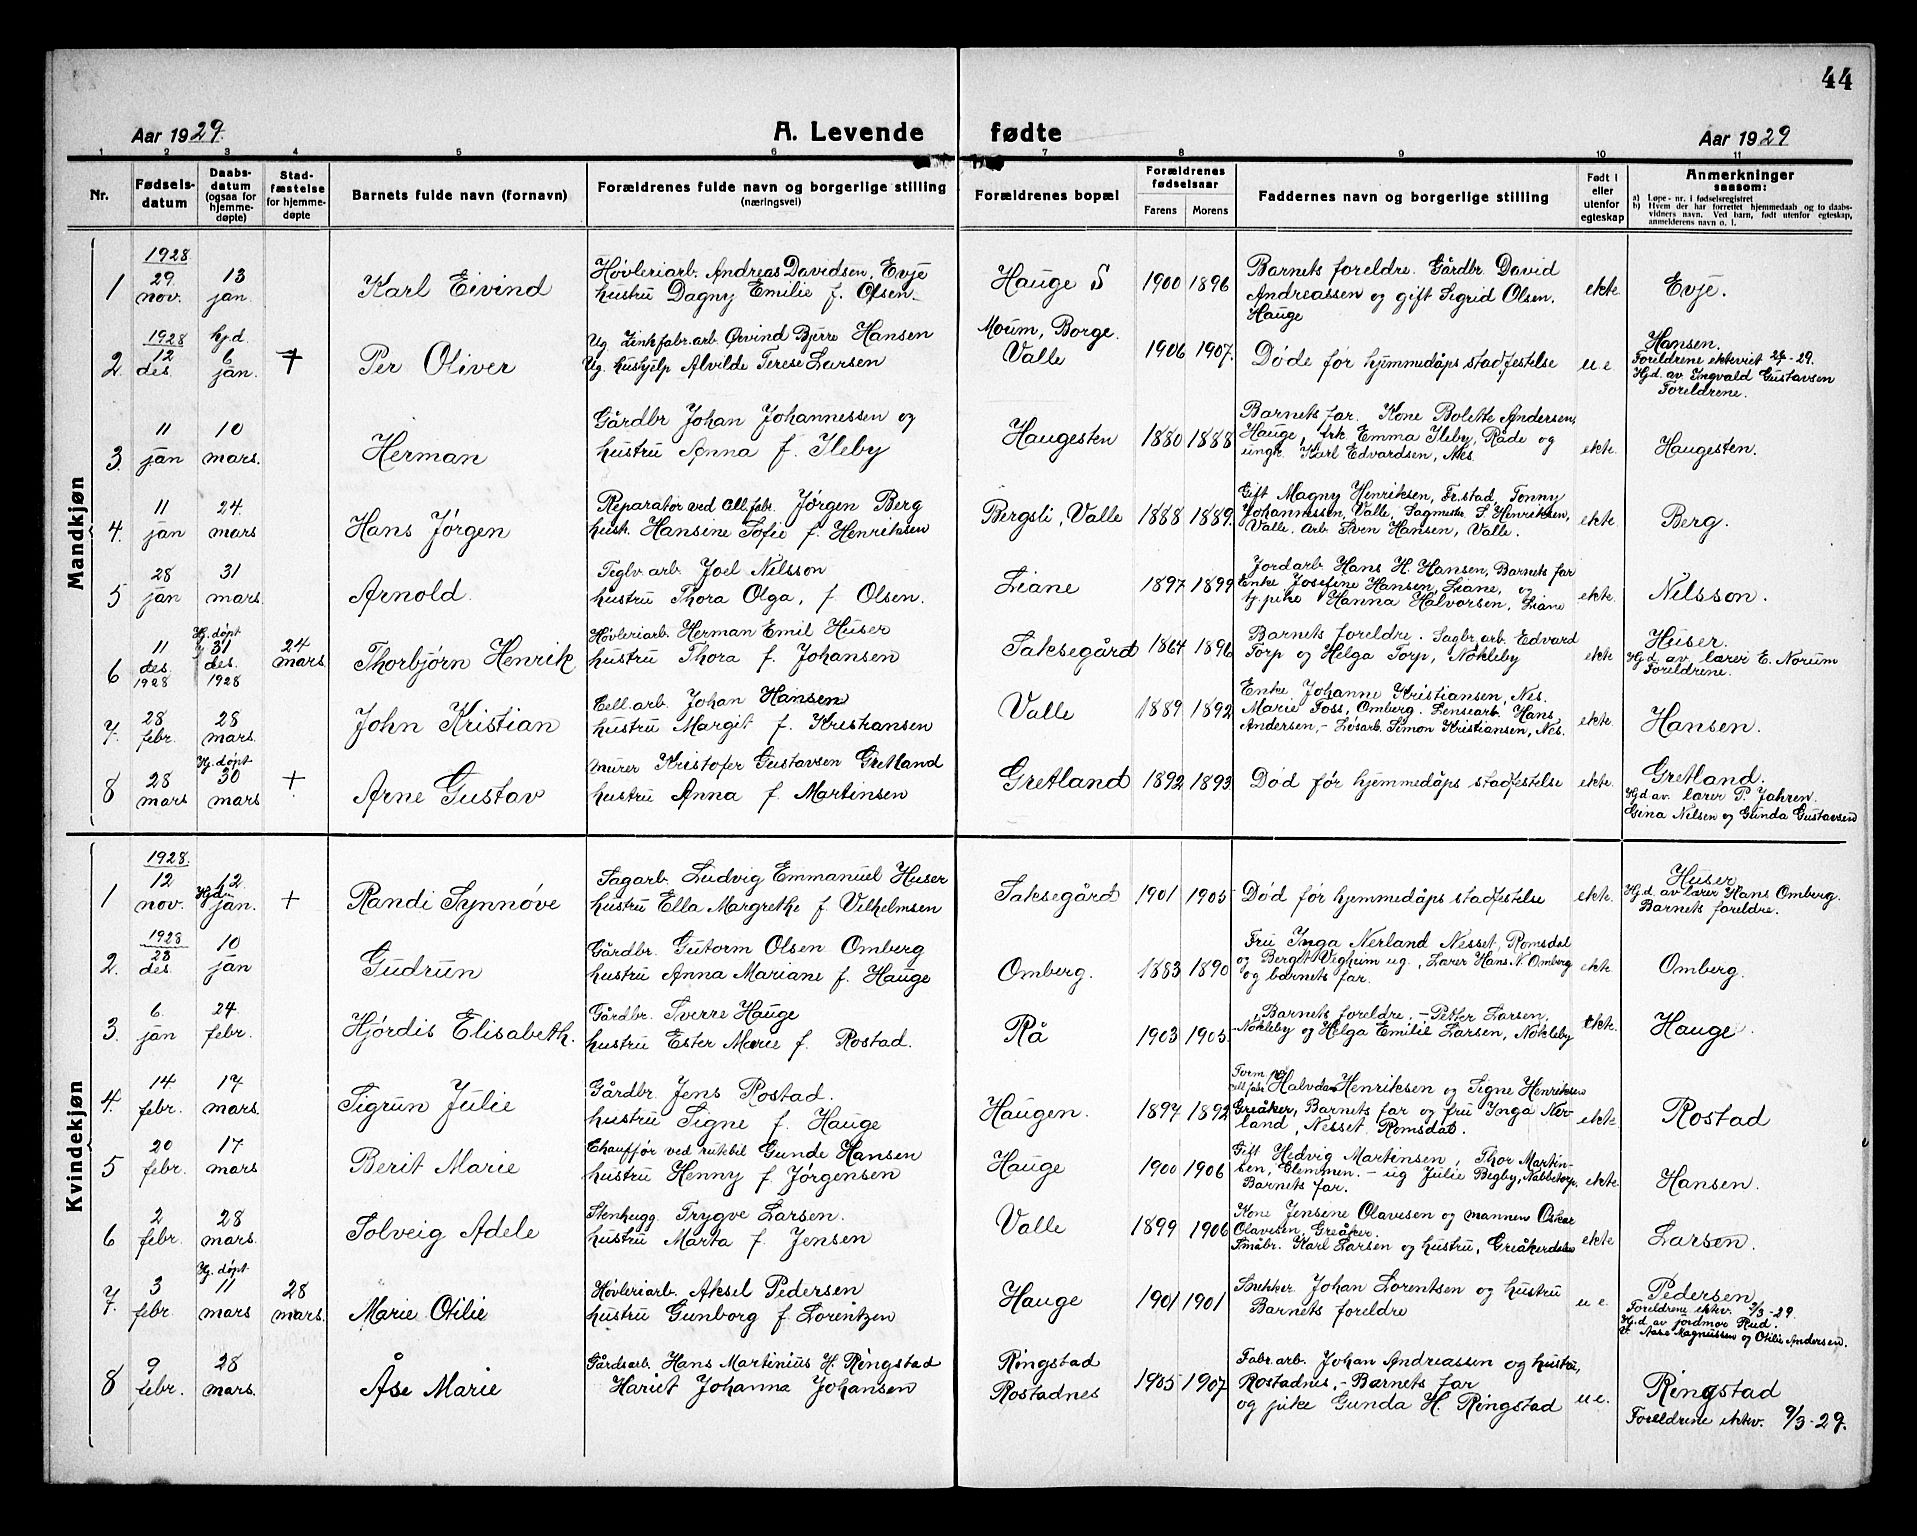 44
Aar 1929. A. Levende fødte Aar 1929
1 2 3 4 5 6 7 8 9 10 11
Nr. Fødsels-datum Daabs-datum (ogsaa for hjemme-døpte) Stad-fæstelse for hjemme-døpte Barnets fulde navn (fornavn) Forældrenes fulde navn og borgerlige stilling (næringsvei) Forældrenes bopæl Forældrenes fødselsaar Farens Morens Faddernes navn og borgerlige stilling Født i eller utenfor egteskap Anmerkninger saasom:
a) Løpe-nr. i fødselsregistret
b) Hvem der har forrettet hjemmedaab og to daabs-vidners navn. Ved barn, født utenfor egteskap, anmelderens navn o. l.
Mandkjøn
1 1928 29 nov. 13 jan. Karl Eivind
Høvleriarb. Andreas Davidsen, Evje
hustru Dagny Emilie f. Olsen
Hauge S 1900 1896
Barnets foreldre. Gårdbr. David
Andreassen og gift Sigrid Olsen.
Hauge
ekte. Evje.
2. 1928 12 des. hj.d. 6 jan. + Per Oliver
Ug. Zinkfabr.arb. Øivind Bjerre Hansen
Ug. hushjelp Alvilde Terese Larsen
Moum, Borge.
Valle 1906 1907.
Døde før hjemmedåps stadfestelse u e
Hansen.
Foreldrene ekteviet -29.
Hj.d. av Ingvald Gustavsen
Foreldrene.
3. 11 jan 10 mars. Herman
Gårdbr Johan Johannessen og
hustru Anna f. Ileby
Haugesten 1880 1888
Barnets far. Kone Bolette Andersen,
Hauge, frk. Emma Ileby, Råde og
ungk. Karl Edvardsen, Nes.
ekte. Haugesten.
4. 11 jan 24. mars Hans Jørgen
Reparatør ved Cell.fabr. Jørgen Berg
husk. Hansine Sofie f. Henriksen
Bergsli, Valle 1888 1889.
Gift Magny Henriksen, Fr.stad, Tonny
Johannessen, Valle, Sagmester S. Henriksen,
Valle. arb Sven Hansen, Valle.
ekte. Berg.
5 28 jan 31 mars. Arnold.
Teglv.arb. Joel Nilsson
hustru Thora Olga, f. Olsen.
Liane 1897 1899
Jordarb. Hans H. Hansen, Barnets far
Enke Josefine Hansen, Liane, og
pike Hanna Halvorsen, Liane
ekte. Nilsson.
6 11 des. 1928 Hj. døpt 31 des. 1928 24 mars Thorbjørn Henrik
Høvleriarb. Herman Emil Huser
hustru Thora f. Johansen
Saksegård 1864 1896
Barnets foreldre. Sagbr.arb. Edvard
Torp og Helga Torp, Nokleby
ekte
Huser.
Hj.d. av lærer E. Norum
Foreldrene.
7. 28 febr. 28 mars. John Kristian
Cell.arb. Johan Hansen
hustru Margit f. Kristiansen
Valle 1889 1892
Enke Johanne Kristiansen, Nes.
Marie Foss, Omberg. Lensearb. Hans
Andersen, - Løsarb. Simon Kristiansen, Nes.
ekte. Hansen.
8 28 mars Hj. døpt 30 mars + Arne Gustav
Murer Kristofer Gustavsen Gretland
hustru Anna f. Martinsen
Gretland 1892 1893
Død før hjemmedåps stadfestelse ekte.
Gretland.
Hj.d av. lærer P. Jahren.
Gina Nilsen og Gunda Gustavsen
Kvindekjøn
1 1928. 12 nov. 12 Hj.d. jan. + Randi Synnöve
Sagarb. Ludvig Emmanuel Huser
hustru Ella Margrethe f. Vilhelmsen
Saksegård 1901 1905
Død før hjemmedåps stadfestelse ekte.
Huser
Hj.d av lærer Hans Omberg.
Barnets foreldre.
2. 1928 23 des. 10 jan Gudrun
Gårdbr. Gutorm Olsen Omberg
hustru Anna Mariane f. Hauge
Omberg. 1883 1890
Fru Inga Nerland Nesset, Romsdal
og Bergit Vighum ug., Lærer Hans N. Omberg
og barnets far.
ekte. Omberg.
3. 6. jan 24. febr. Hjördis Elisabeth.
Gårdbr. Sverre Hauge
hustru Ester Marie f. Rostad.
Rå 1903 1905.
Barnets foreldre. - Petter Larsen,
Nokleby og Helga Emilie Larsen, Nokleby
ekte. Hauge.
4. 14 febr. 17 mars. Sigrun Julie
Gårdbr. Jens Rostad.
hustru Signe f. Hauge
Haugen. 1897 1892
Form. på cell.fabr Halvdan Henriksen og Signe Henriksen
Greåker, Barnets far og fru Inga Ner-
land, Nesset, Romsdal.
ekte. Rostad
5 20 febr. 17 mars Berit Marie
Chauffør ved rutebil Gunde Hansen
hustru Henny f. Jörgensen
Hauge 1900 1906
Gift Hedvig Martinsen, Thor Martin-
sen, Glemmen. - ug Julie Bigby, Nabbetorp.
Barnets far.
ekte. Hansen.
6 2 febr. 28 mars. Solveig Adele
Stenhugg. Trygve Larsen.
hustru Marta f. Jensen
Valle 1899 1906
Kone Jensine Olavesen og mannen Oskar
Olavesen, Greåker.
Småbr. Karl Larsen og hustru, Greåkerdalen
ekte Larsen.
7. 3 febr Hj. døpt 11 mars 28 mars. Marie Otilie
Høvleriarb. Aksel Pedersen
hustru Gunborg f. Lorentzen
Hauge 1901 1901
Snekker Johan Lorentsen og hustru
Barnets foreldre
u e.
Pedersen
Foreldrene ektev. 9/3-29.
Hj.d av jordmor Rud.
V. Aase Magnussen og Otilie Andersen.
8 9 febr. 28 mars. Åse Marie
Gårdsarb. Hans Martinius H. Ringstad
Hariet Johanna Johansen
Ringstad
Rostadnes 1905 1907
Fabr.arb. Johan Andreassen og hustru,
Rostadnes, - Barnets far
og pike Gunda H. Ringstad
u e.
Ringstad
Foreldrene ektev. 9/3-29.